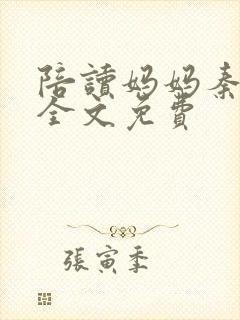 陪讀媽媽秦
全文免費
張寅季